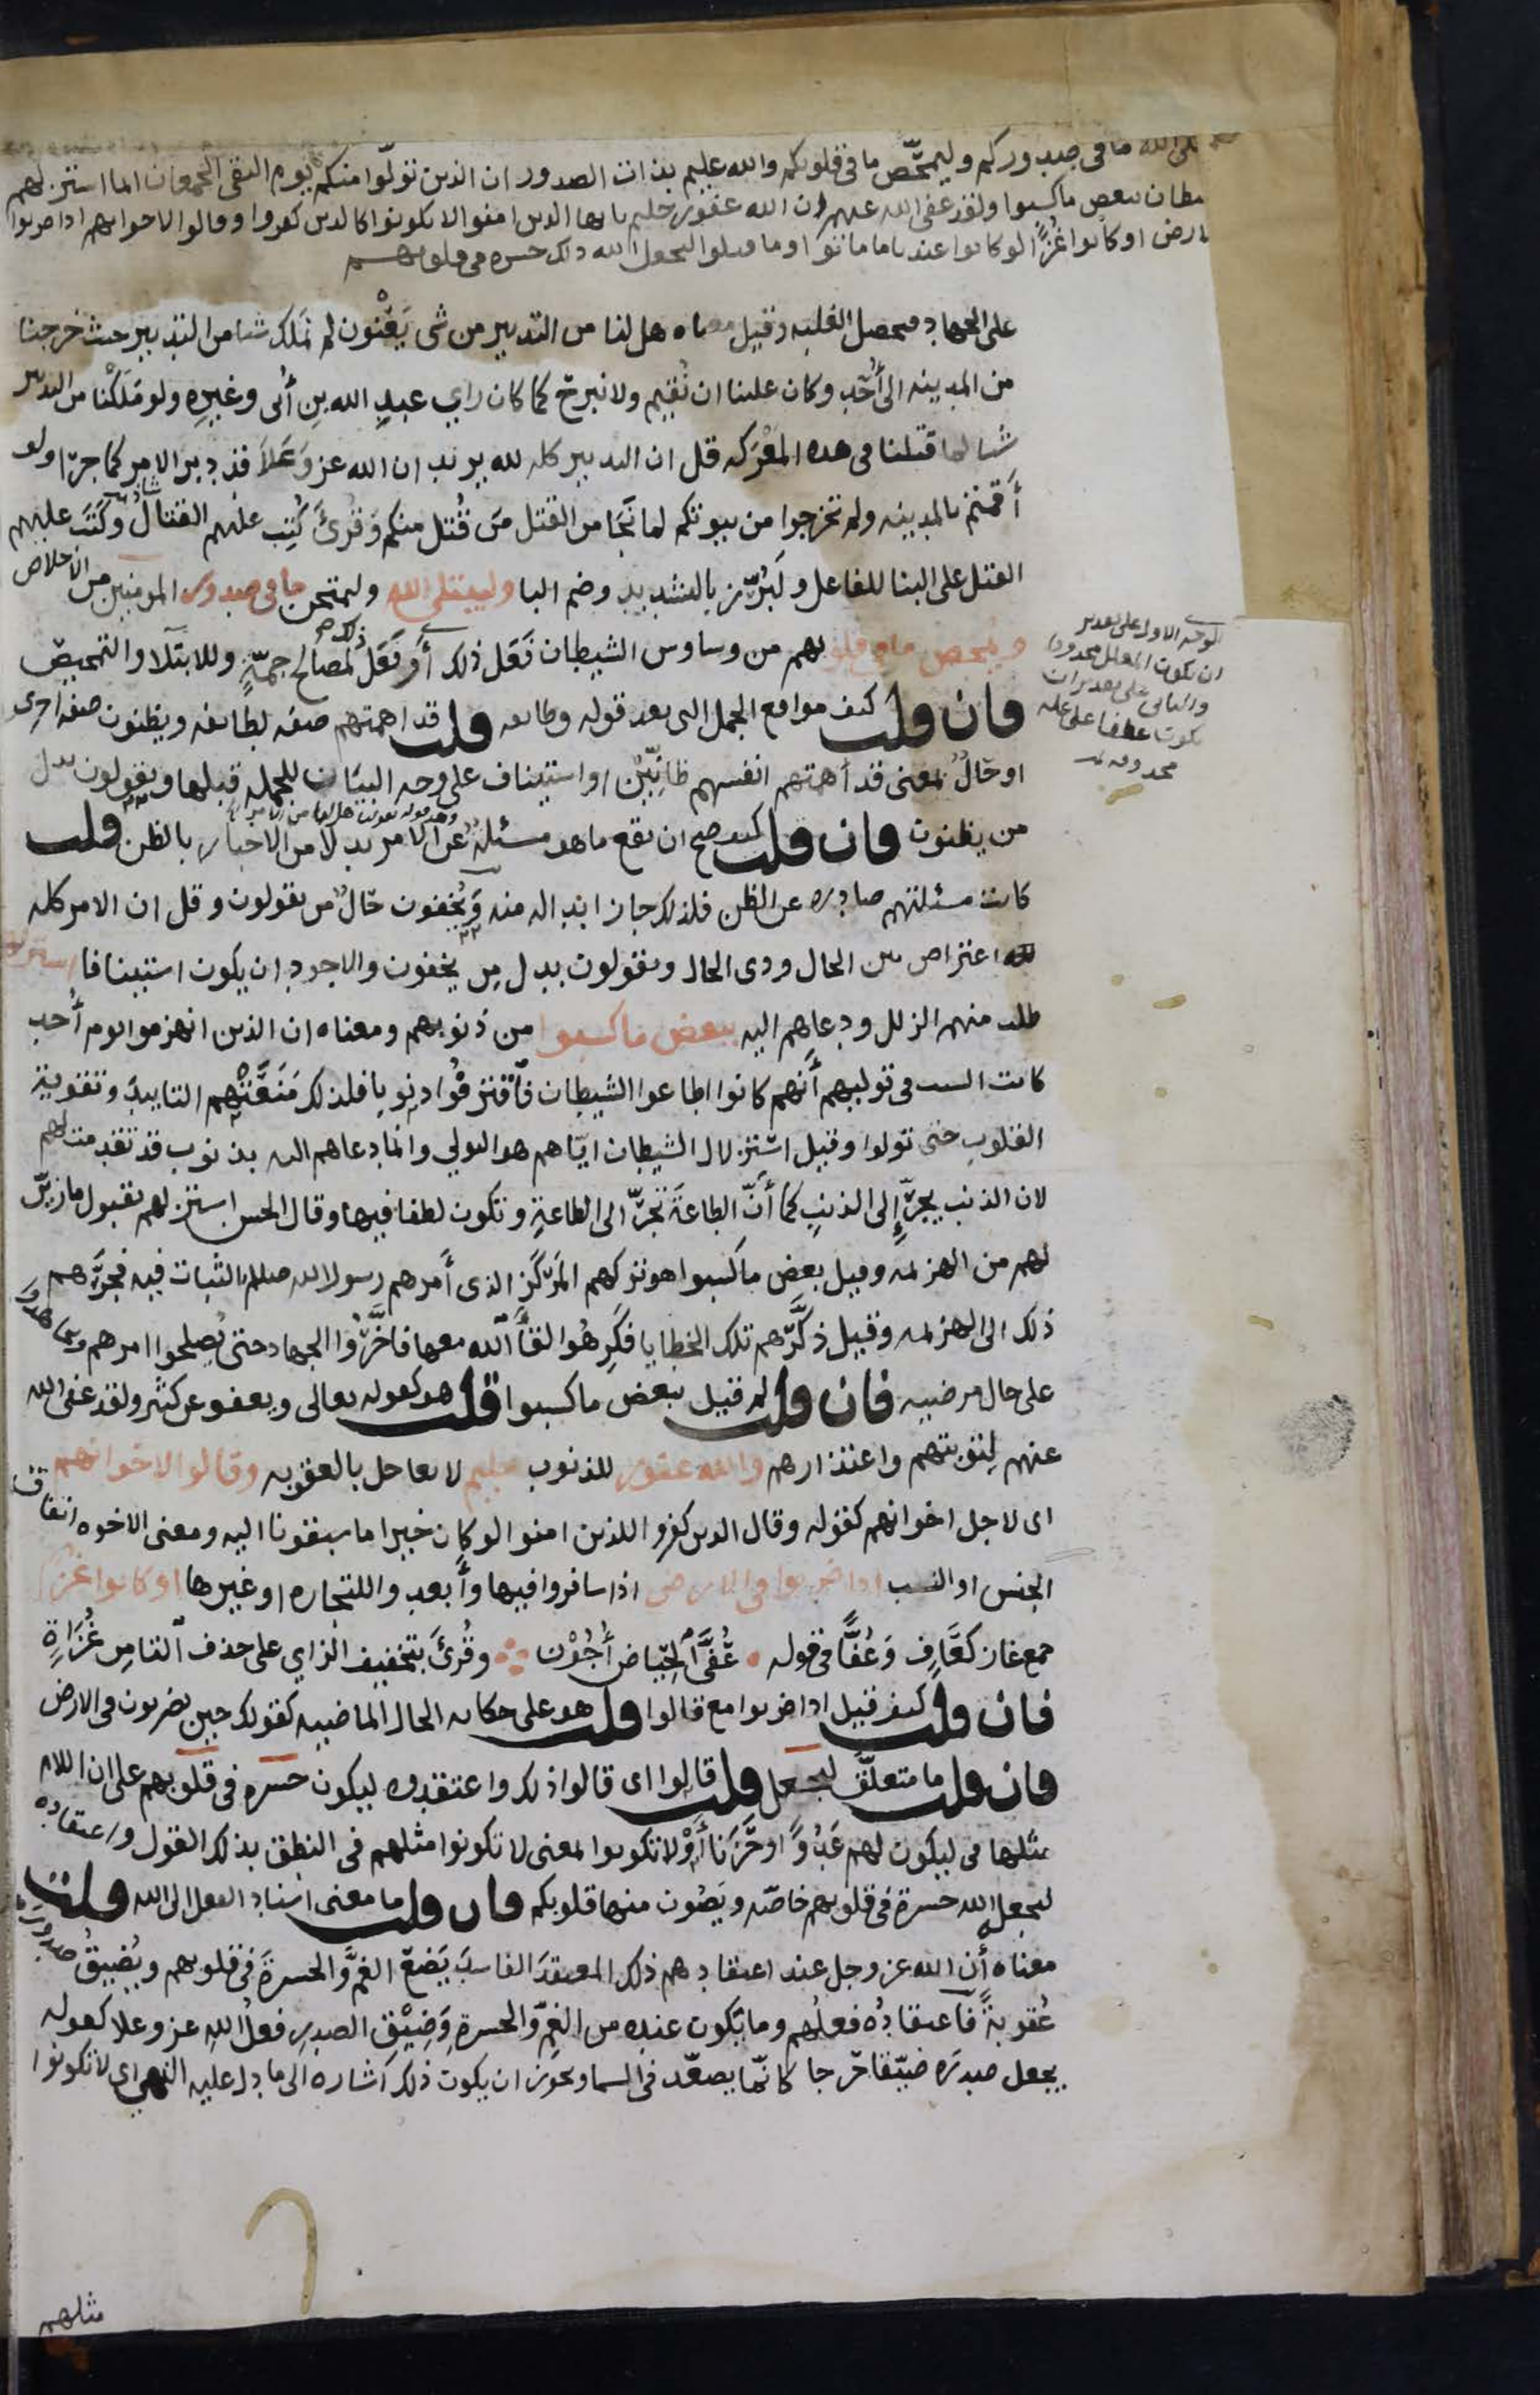 الله ما في صدوركم وليمحّص ما في قلوبكم والله عليم بذات الصدور ان الذين تولّوا منكم يوم التقى الجمعان انما استزلهم
ببعض ما كسبوا ولقد عفى الله عنهم ان الله غفور حليم يا ايها الذين امنوا لا تكونوا كالذين كفروا وقالوا لاخوانهم اذا ضربوا
او كانوا غزًّا لو كانوا عندنا ما ماتوا وما قتلوا ليجعل الله ذلك حسرة في قلوبهم
على الجهاد فيحصل الغلبه وقيل معناه هل لنا من التدبير من شى يَعْنُون لم نملك شيا من التدبير حيث خرجنا
من المدينه الى أُحُد وكان علينا ان نُقِيم ولا نبرح كما كان راي عبدِ الله بنِ أُبى وغيرِه ولو مَلَكْنا من التدبير
شيا لما قتلنا في هذه المَعْرَكه قل ان التدبير كله لله يريد ان الله عز وَعَلاَ قد دبر الامر كما جرا ولو
أَقمتم بالمدينه ولم تخرجوا من بيوتكم لما نَجَا من القتل مَن قُتل منكم وَقُرئَ كُتِب عليهم القتالُ وكَتَبَ عليهم
القتل على البنا للفاعل ولَبُرِّز بالتشديد وضم البا وليبتلى الله وليمتحن ما في صدور المومنين من الاخلاص
ويمحص ما في قلوبهم من وساوس الشيطان فَعَل ذلك أو فَعَل ذلك لمصالح جمّةٍ وللابتلا والتمحيص
فان قلت كيف مواقع الجمل التى بعد قوله وطايفه قلت قد اهمتهم صفه لطايفه ويظنون صفه اخرى
او حالٌ بمعنى قد أهمتهم انفسهم ظانِّيْن او استيناف على وجه البيان للجمله قبلها ويقولون بدل
من يظنون فان قلت كيف صح ان يقع ما هو مسئلةٌ عن الامر بدلا من الاخبار بالظن قلت
كانت مسئلتهم صادره عن الظن فلذلك جاز ابداله منه وَيُخفون حالٌ من يقولون وقل ان الامر كله
لله اعتراض بين الحال وذى الحال ويقولون بدل مِن يخفون والاجود ان يكون استينافا استزلهم
طلب منهم الزلل ودعاهم اليه ببعض ما كسبوا من ذنوبهم ومعناه ان الذين انهزموا يوم أُحد
كانت السبب في توليهم أَنهم كانوا اطاعوا الشيطان فاَقترفُوا ذنوبا فلذلك مَنَعَتْهم التاييدَ وتقوية
القلوب حتى تولوا وقيل استزلال الشيطان ايّاهم هو التولي وانما دعاهم اليه بذنوب قد تقدمت لهم
لان الذنب يجرّ إِلى الذنبِ كما أَنّ الطاعةَ تَجرّ الى الطاعةِ وتكون لطفا فيها وقال الحسن استزلهم بقبول ما زيّن
لهم من الهزيمه وقيل بعض ما كسبوا هو تركهم المَركَز الذى أَمرهم رسول الله صلعم بالثبات فيه فجرَّهم
ذلك الى الهزيمه وقيل ذكّرَهم تلك الخطايا فكَرِهُوا لقَآ الله معها فاخَّرُوا الجهاد حتى يُصلحوا امرهم ويجاهدوا
على حال مرضيه فان قلت لم قيل ببعض ما كسبوا قلت هو كقوله تعالى ويعفو عن كثير ولقد عفى الله
عنهم لِتوبتهم واعتذارهم والله غفور للذنوب حليم لا يعاجل بالعقوبه وقالوا لاخوانهم
اى لاجل اخوانهم كقوله وقال الذين كفروا للذين امنوا لو كان خيرا ما سبقونا اليه ومعنى الاخوه اتفاق
الجنس او النسب اذا ضربوا في الارض اذا سافروا فيها وأبعدوا للتجاره او غيرها او كانوا غزًّا
جمع غاز كعَافٍ وَعُفًّا في قوله عُفَّى الحِيَاض أُجُوْن وقُرئَ بتخفيف الزاي على حذف التا مِن غُزَاةٍ
فان قلت كيف قيل اذا ضربوا مع قالوا قلت هو على حكايه الحال الماضيه كقولك حين يضربون في الارض
فان قلت ما متعلَّق ليجعل قلت قالوا اى قالوا ذلك واعتقدوه ليكون حسره في قلوبهم على ان اللام
مثلها في ليكون لهم عَدُوًّا وحَزَنَا أَوْ لا تكونوا بمعنى لا تكونوا مثلهم في النطق بذلك القول واعتقاده
ليجعل الله حسرة في قلوبهم خاصّه ويَصُون منها قلوبكم فان قلت ما معنى اسناد الفعل الى الله قلت
معناه أن الله عز وجل عند اعتقادهم ذلك المعتقدَ الفاسدَ يَضع الغمَّ والحسرةَ في قلوبهم ويُضيقُ صدورهم
عُقوبةً فاعتقادُه فعلُهم وما يكون عنده من الغمِّ والحسرةِ وَضِيْقِ الصدرِ فعلُ اللهِ عز وعلا كقوله
يجعل صدرَه ضيّقا حرجا كانّما يصعّد في السما ويجوز ان يكون ذلك اشاره الى ما دل عليه النهى اى لا تكونوا
الوجه الاول على تقدير
ان يكون المعلل محذوفا
والثانى على تقدير ان
يكون عطفا على علة
محذوفه
مثلهم